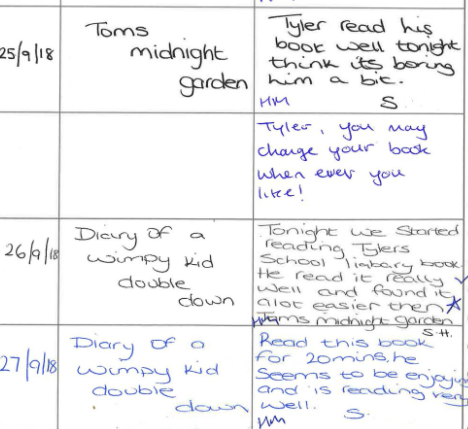 25/9/18
Toms
midnight
garden
Tyler read his
book well tonight
think its boring
him a bit.
HM S
Tyler, you may
change your book
when ever you
like!
26/9/18
Diary of a
wimpy kid
double
down
Tonight we started
reading Tylers
School ligbary book
He read it really
well and found it
alot easier then
Toms midnight garden
HM S.H.
27/9/18
Diary of a
wimpy kid
double
down
Read this book
for 20mins, he
seems to be enjoying
and is reading very
well. S.
HM